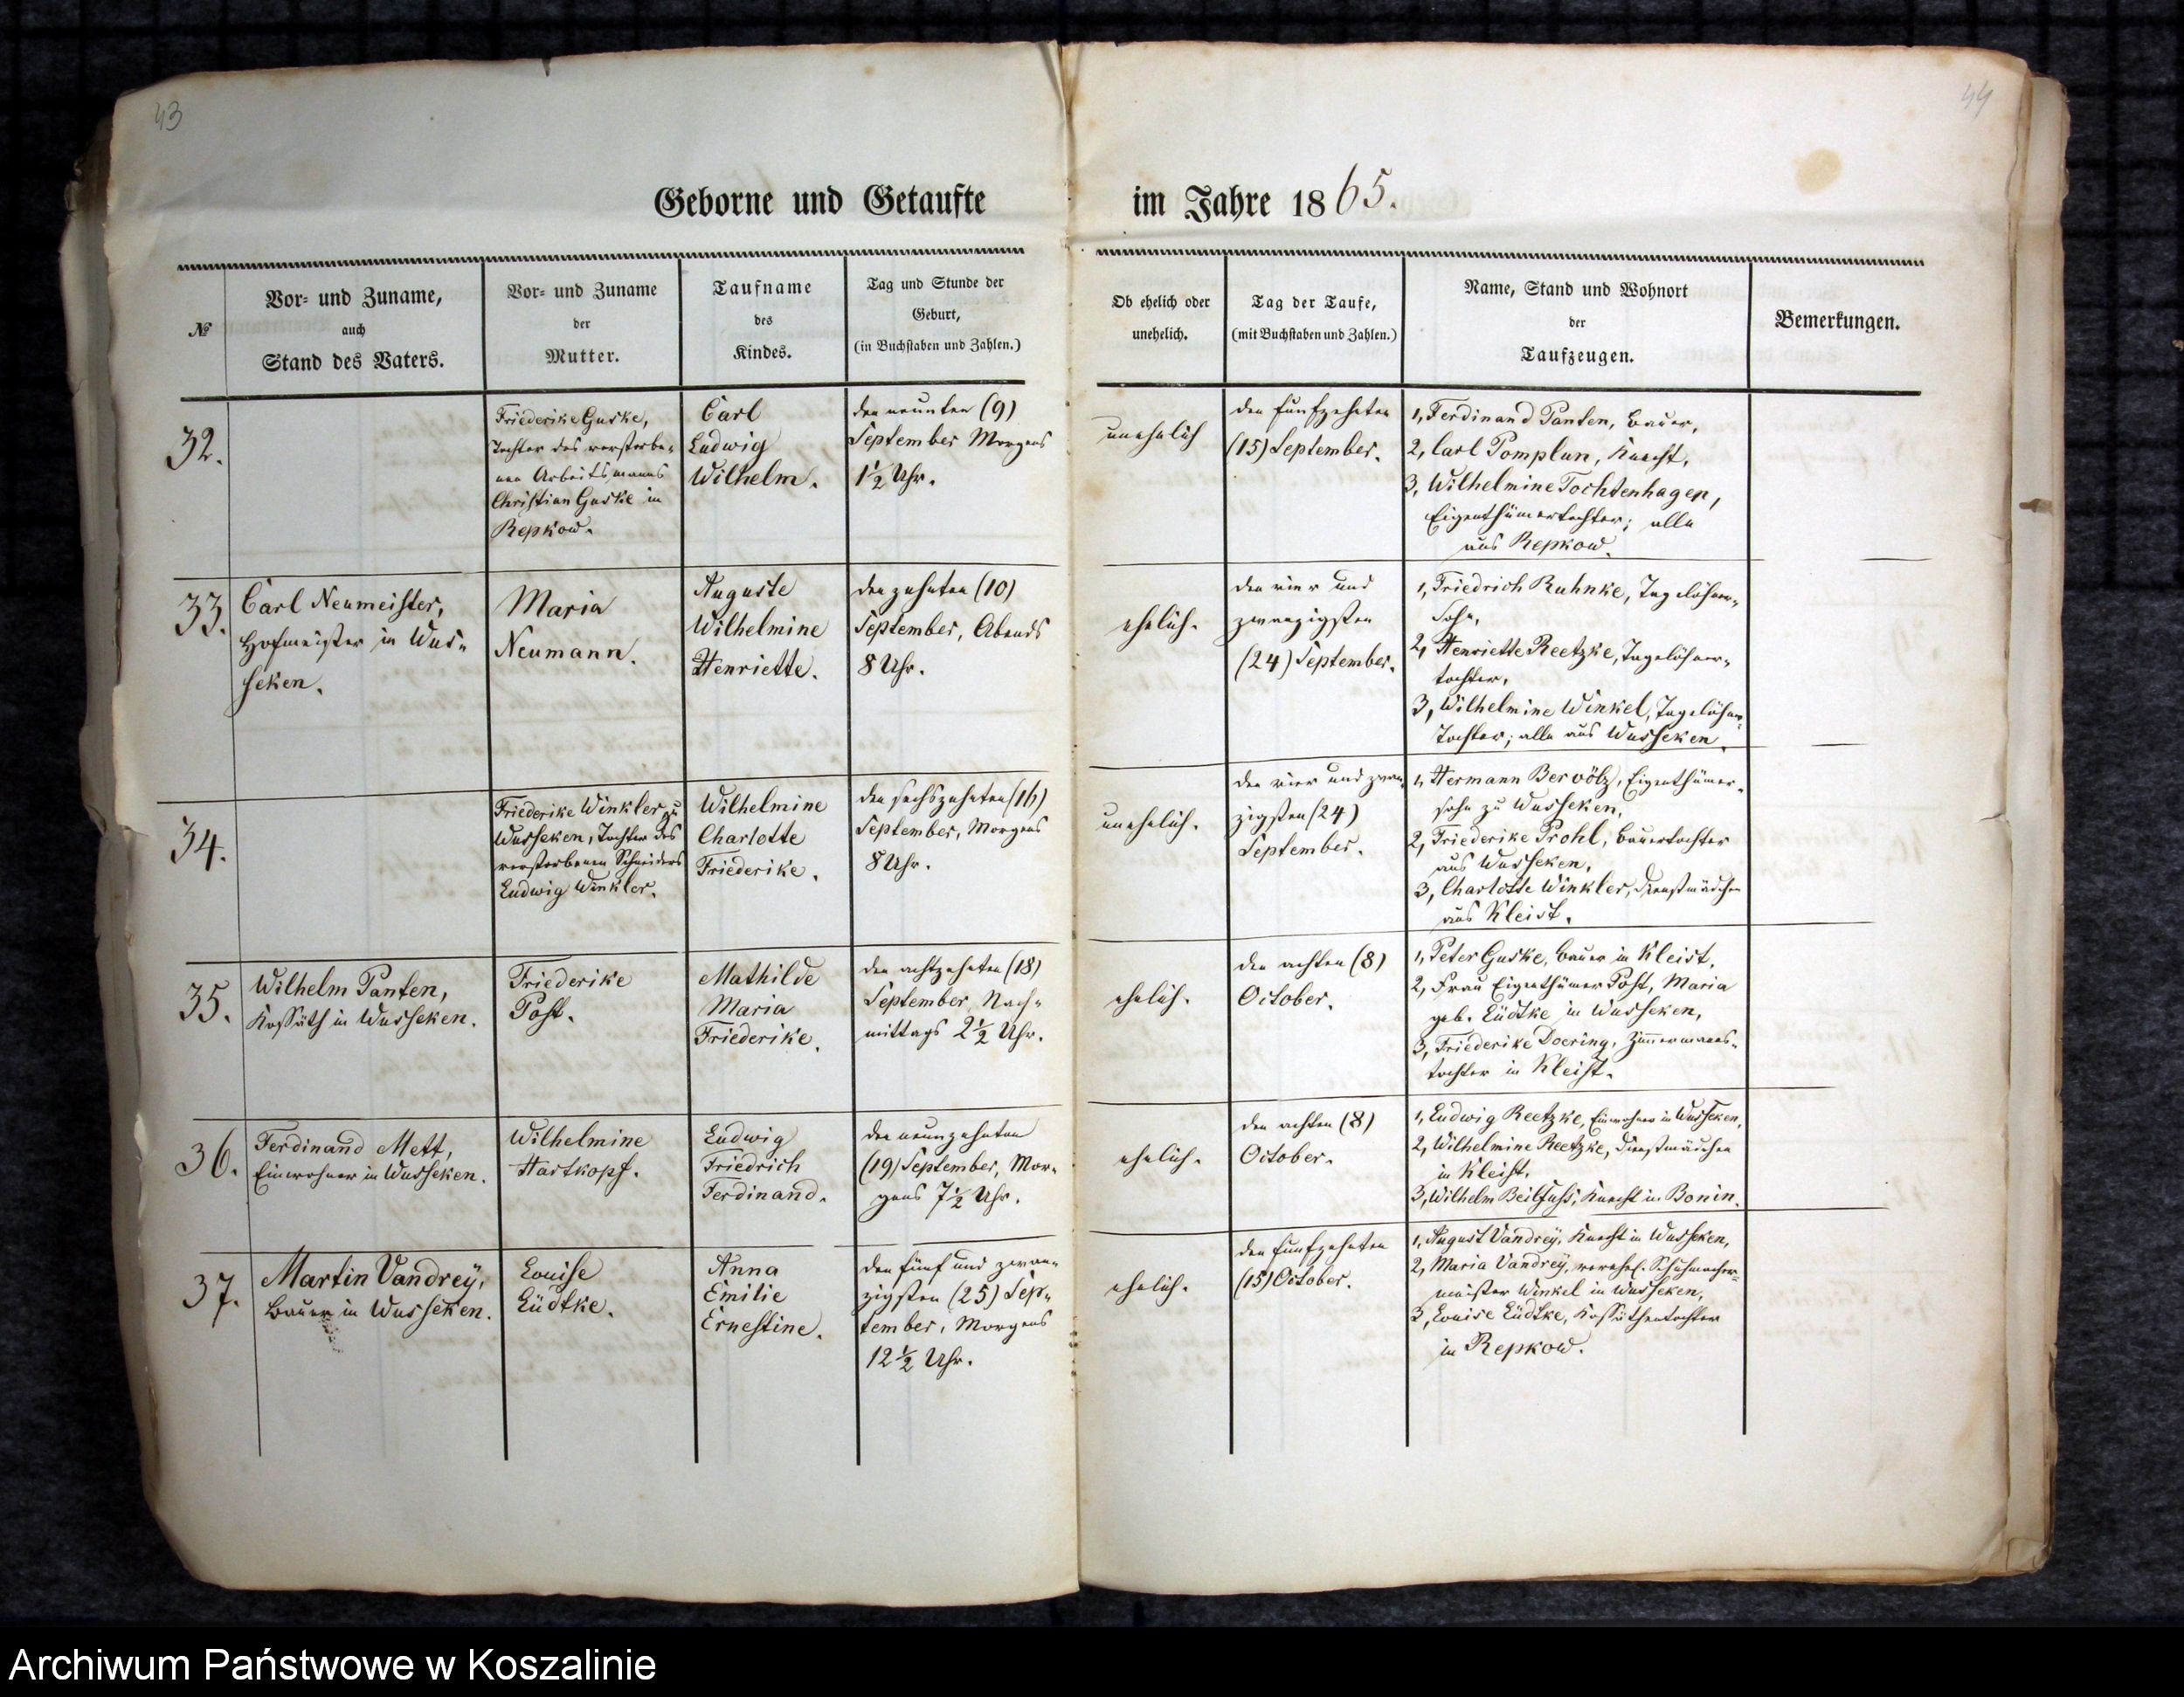 43
44
Geborne und Getaufte
im Jahre 1865.
№
Vor- und Zuname,
auch
Stand des Vaters.
Vor- und Zuname
der
Mutter.
Taufname
des
Kindes.
Tag und Stunde der
Geburt,
(in Buchstaben und Zahlen.)
Ob ehelich oder
unehelich.
Tag der Taufe,
(mit Buchstaben und Zahlen.)
Name, Stand und Wohnort
der
Taufzeugen.
Bemerkungen.
32.
Friederike Guske,
Tochter des verstorbe-
nen Arbeitsmanns
Christian Guske in
Repkow.
Carl
Ludwig
Wilhelm.
den neunten (9)
September Morgens
1 1/2 Uhr.
unehelich
den funfzehnten
(15) September.
1, Ferdinand Panten, Bauer,
2, Carl Pomplun, Knecht,
3, Wilhelmine Tochtenhagen,
Eigenthümertochter; alle
aus Repkow.
33.
Carl Neumeister,
Hofmeister in Wus-
seken.
Maria
Neumann.
Auguste
Wilhelmine
Henriette.
den zehnten (10)
September, Abends
8 Uhr.
ehelich.
den vier und
zwanzigsten
(24) September.
1, Friedrich Ruhnke, Tagelöhner-
Sohn,
2, Henriette Reetzke, Tagelöhner-
tochter,
3, Wilhelmine Winkel, Tagelöhner-
Tochter; alle aus Wusseken.
34.
Friederike Winkler zu
Wusseken, Tochter des
verstorbenen Schneiders
Ludwig Winkler.
Wilhelmine
Charlotte
Friederike.
den sechszehnten (16)
September, Morgens
8 Uhr.
unehelich.
den vier und zwan-
zigsten (24)
September.
1, Hermann Bervölz, Eigenthümer-
sohn zu Wusseken,
2, Friederike Prohl, Bauertochter
aus Wusseken,
3, Charlotte Winkler, Dienstmädchen
aus Kleist.
35.
Wilhelm Panten,
Kossäth in Wusseken.
Friederike
Post.
Mathilde
Maria
Friederike.
den achtzehnten (18)
September, Nach-
mittags 2 1/2 Uhr.
ehelich.
den achten (8)
October.
1, Peter Guske, Bauer in Kleist,
2, Frau Eigenthümer Post, Maria
geb. Lüdtke in Wusseken,
3, Friederike Doering, Zimmermanns-
tochter in Kleist.
36.
Ferdinand Mett,
Einwohner in Wusseken.
Wilhelmine
Hartkopf.
Ludwig
Friedrich
Ferdinand.
den neunzehnten
(19) September, Mor-
gens 7 1/2 Uhr.
ehelich.
den achten (8)
October.
1, Ludwig Reetzke, Einwohner in Wusseken,
2, Wilhelmine Reetzke, Dienstmädchen
in Kleist,
3, Wilhelm Beilfuss, Knecht in Bonin.
37.
Martin Vandrey,
Bauer in Wusseken.
Louise
Lüdtke.
Anna
Emilie
Ernestine.
den fünf und zwan-
zigsten (25) Sep-
tember, Morgens
12 1/2 Uhr.
ehelich.
den funfzehnten
(15) October.
1, August Vandrey, Knecht in Wusseken,
2, Maria Vandrey, verehel. Schuhmacher-
meister Winkel in Wusseken,
3, Louise Lüdtke, Kossäthentochter
in Repkow.
Archiwum Państwowe w Koszalinie